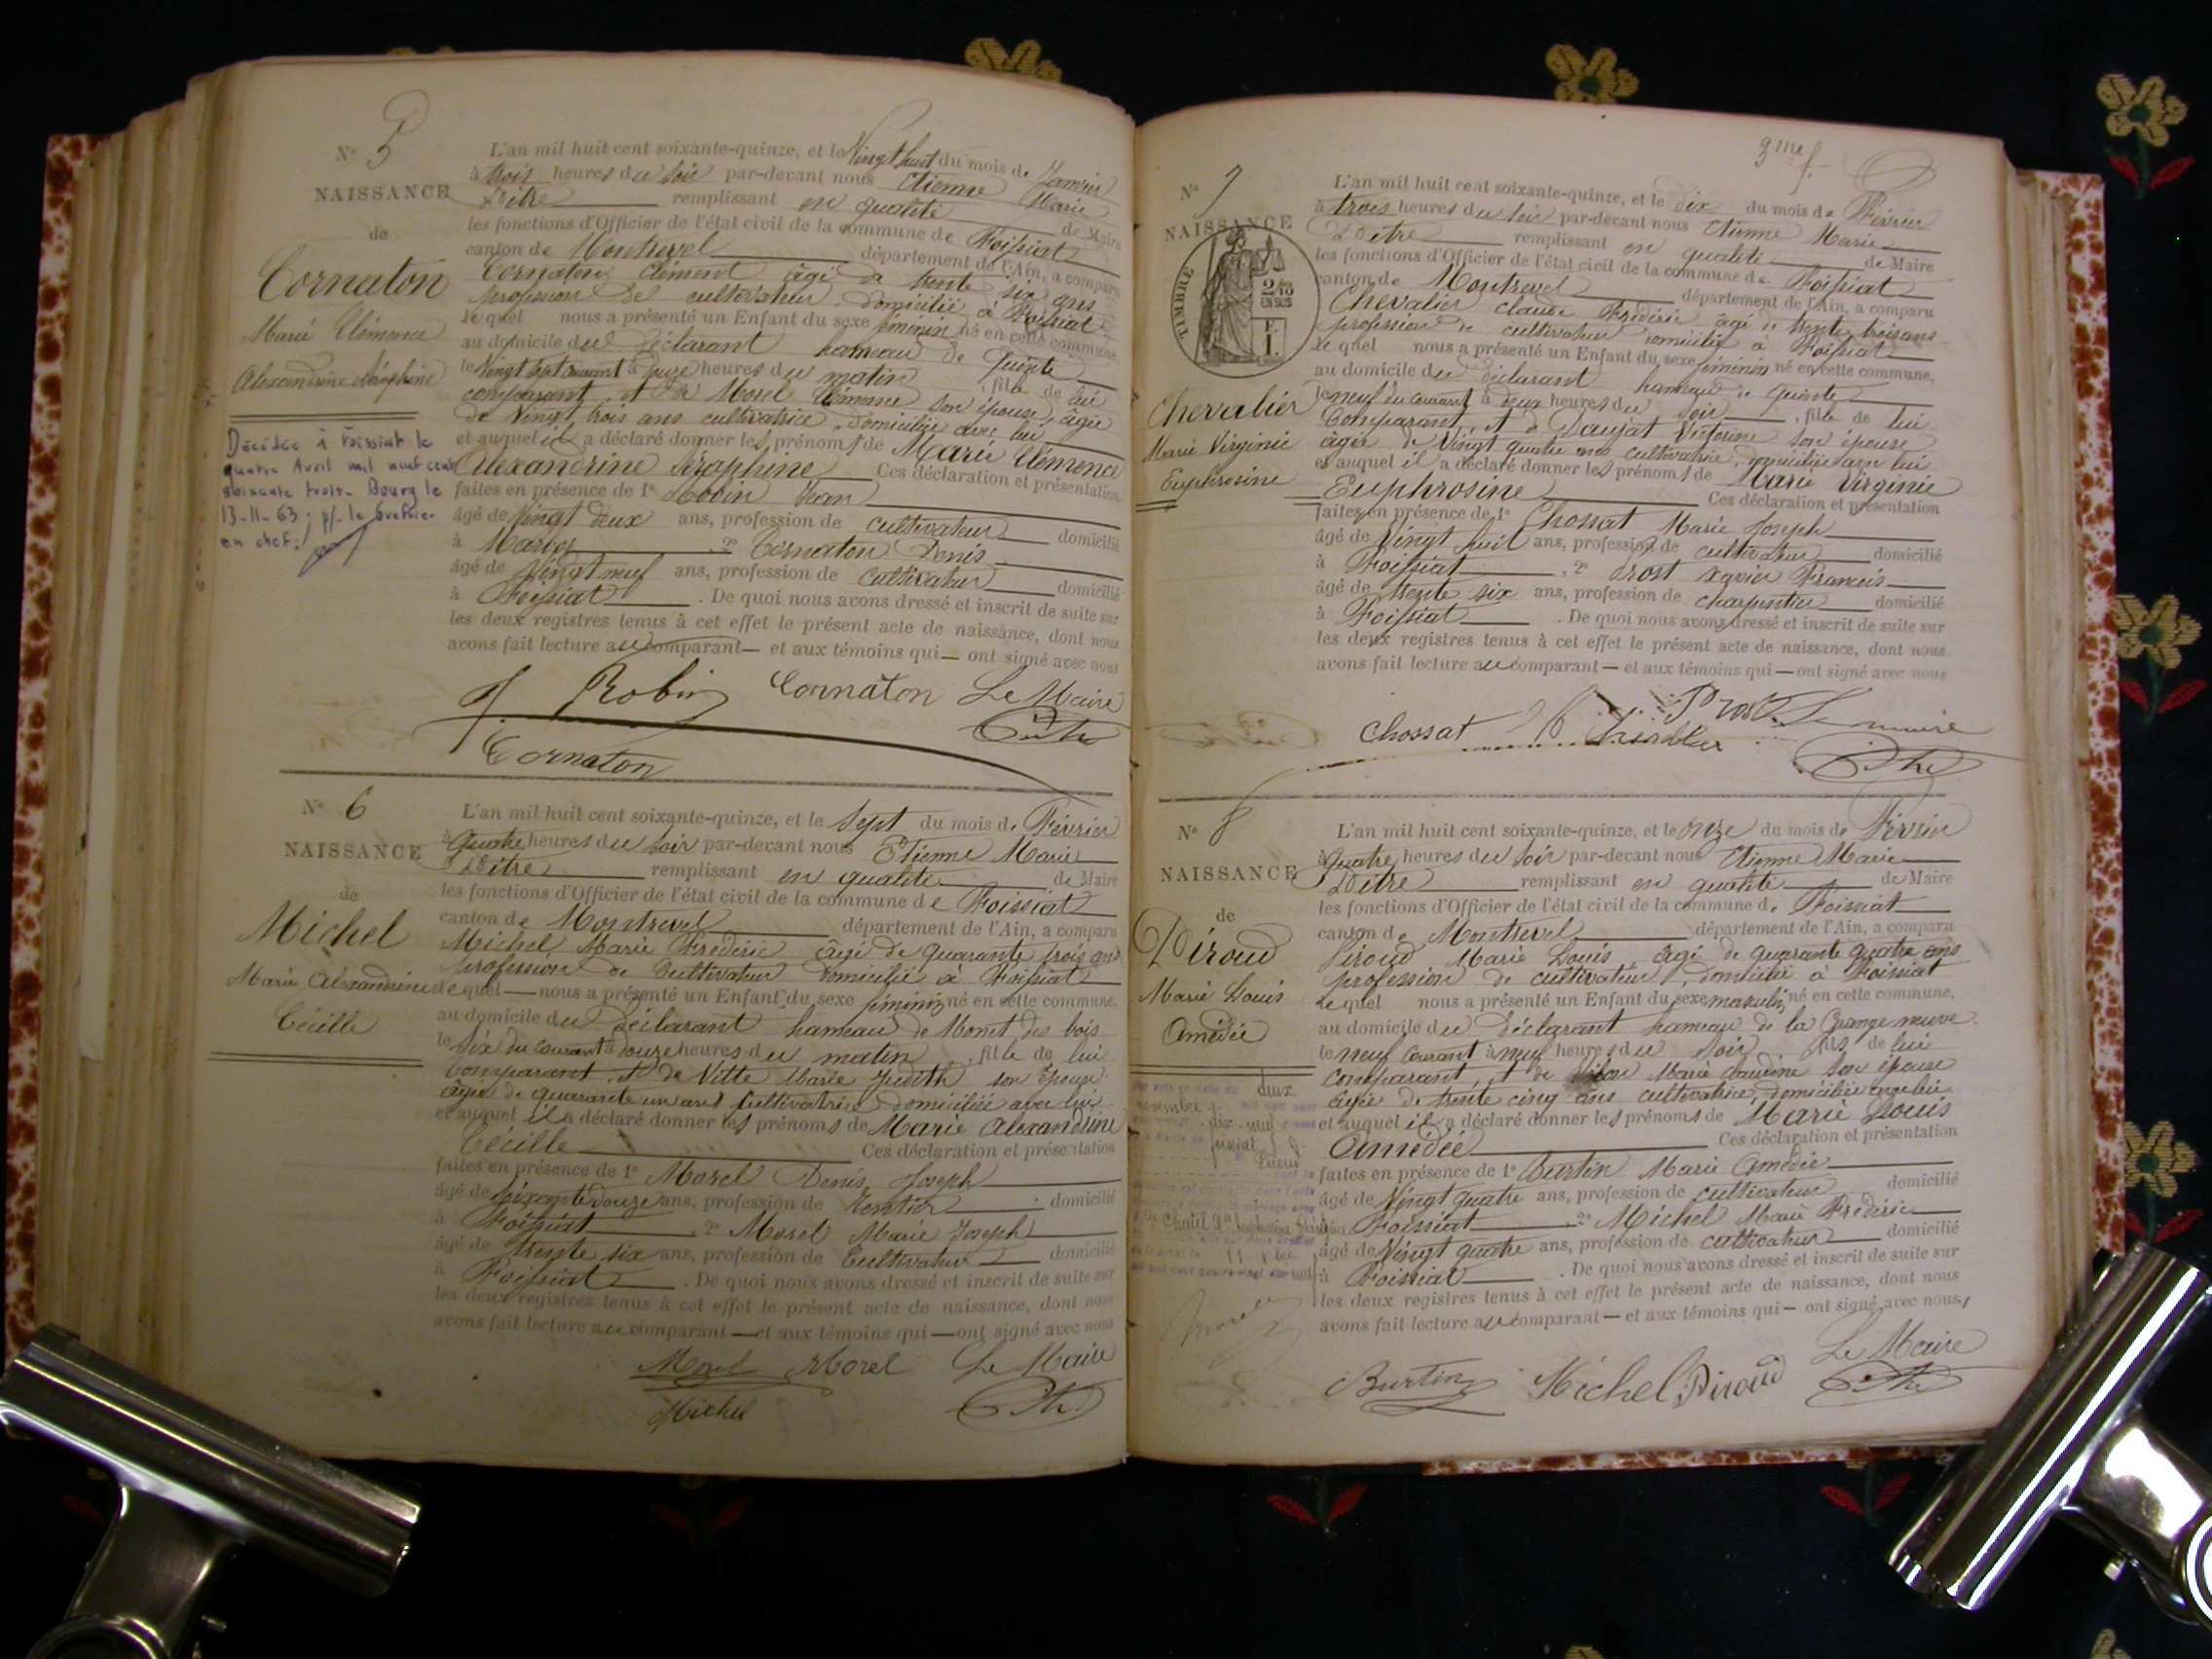 N° 5
NAISSANCE
de
Cornaton
Marie Clémence
Alexandrine Séraphine
Décédée à Foissiat le
quatre Avril mil neuf cent
soixante trois. Bourg le
13-11-63; p/. le Greffier
en chef:
L'an mil huit cent soixante-quinze, et le Vingt huit du mois de Janvier
à trois heures du soir par-devant nous Etienne Marie
Pitre remplissant en qualité de Maire
les fonctions d'Officier de l'état civil de la commune de Foissiat
canton de Montrevel département de l'Ain, a comparu
Cornaton Clément âgé de trente six ans
profession de cultivateur domicilié à Foissiat
lequel nous a présenté un Enfant du sexe féminin né en cette commune,
au domicile du déclarant hameau de Quinte
le Vingt sept courant à heures du matin, fille de lui
comparant, et de Morel Clémence son épouse, âgée
de Vingt trois ans cultivatrice, domiciliée avec lui
et auquel il a déclaré donner les prénoms de Marie Clémence
Alexandrine Séraphine Ces déclaration et présentation
faites en présence de 1° Robin Jean
âgé de Vingt deux ans, profession de cultivateur domicilié
à , 2° Cornaton Denis
âgé de Vingt neuf ans, profession de cultivateur domicilié
à Foissiat . De quoi nous avons dressé et inscrit de suite sur
les deux registres tenus à cet effet le présent acte de naissance, dont nous
avons fait lecture au comparant et aux témoins qui ont signé avec nous
J. Robin Cornaton Le Maire
Cornaton
N° 6
NAISSANCE
de
Michel
Marie Alexandrine
Cécille
L'an mil huit cent soixante-quinze, et le Sept du mois de Février
à quatre heures du soir par-devant nous Etienne Marie
Pitre remplissant en qualité de Maire
les fonctions d'Officier de l'état civil de la commune de Foissiat
canton de Montrevel département de l'Ain, a comparu
Michel Marie Frédéric âgé de quarante trois ans
profession de Cultivateur domicilié à Foissiat
lequel nous a présenté un Enfant du sexe féminin né en cette commune,
au domicile du déclarant hameau de Monet des bois
le six du courant à douze heures du matin, fille de lui
Comparant, et de Vitte Marie Judith son épouse
âgée de quarante un ans cultivatrice domiciliée avec lui
et auquel il a déclaré donner les prénoms de Marie Alexandrine
Cécille Ces déclaration et présentation
faites en présence de 1° Morel Denis Joseph
âgé de soixante douze ans, profession de Rentier domicilié
à Foissiat , 2° Morel Marie Joseph
âgé de trente six ans, profession de Cultivateur domicilié
à Foissiat . De quoi nous avons dressé et inscrit de suite sur
les deux registres tenus à cet effet le présent acte de naissance, dont nous
avons fait lecture au comparant et aux témoins qui ont signé avec nous
Morel Morel Le Maire
Michel
N° 7
NAISSANCE
TIMBRE
2/10
EN SUS
F.
1.
Chevalier
Marie Virginie
Euphrosine
L'an mil huit cent soixante-quinze, et le dix du mois de Février
à trois heures du soir par-devant nous Etienne Marie
Pitre remplissant en qualité de Maire
les fonctions d'Officier de l'état civil de la commune de Foissiat
canton de Montrevel département de l'Ain, a comparu
Chevalier Claude Frédéric âgé de trente trois ans
profession de cultivateur domicilié à Foissiat
lequel nous a présenté un Enfant du sexe féminin né en cette commune,
au domicile du déclarant hameau de Quinte
le neuf du courant à deux heures du soir, fille de lui
Comparant, et de Daujat Victorine son épouse
âgée de Vingt quatre ans cultivatrice, domiciliée avec lui
et auquel il a déclaré donner les prénoms de Marie Virginie
Euphrosine Ces déclaration et présentation
faites en présence de 1° Chossat Marie Joseph
âgé de Vingt huit ans, profession de cultivateur domicilié
à Foissiat , 2° Prost Xavier Francis
âgé de trente six ans, profession de charpentier domicilié
à Foissiat . De quoi nous avons dressé et inscrit de suite sur
les deux registres tenus à cet effet le présent acte de naissance, dont nous
avons fait lecture au comparant et aux témoins qui ont signé avec nous
Chossat Prost Le maire
N° 8
NAISSANCE
de
Piroud
Marie Louis
Amédée
L'an mil huit cent soixante-quinze, et le onze du mois de Février
à quatre heures du soir par-devant nous Etienne Marie
Pitre remplissant en qualité de Maire
les fonctions d'Officier de l'état civil de la commune de Foissiat
canton de Montrevel département de l'Ain, a comparu
Piroud Marie Louis âgé de quarante quatre ans
profession de cultivateur, domicilié à Foissiat
lequel nous a présenté un Enfant du sexe masculin né en cette commune,
au domicile du déclarant hameau de la Grange neuve
le neuf courant à neuf heures du soir fils de lui
comparant, et de Marie Claudine son épouse
âgée de trente cinq ans cultivatrice, domiciliée avec lui
et auquel il a déclaré donner les prénoms de Marie Louis
Amédée Ces déclaration et présentation
faites en présence de 1° Burtin Marie Amédée
âgé de Vingt quatre ans, profession de cultivateur domicilié
à Foissiat , 2° Michel Marie Frédéric
âgé de Vingt quatre ans, profession de cultivateur domicilié
à Foissiat . De quoi nous avons dressé et inscrit de suite sur
les deux registres tenus à cet effet le présent acte de naissance, dont nous
avons fait lecture au comparant et aux témoins qui ont signé avec nous
Le Maire
Burtin Michel Piroud